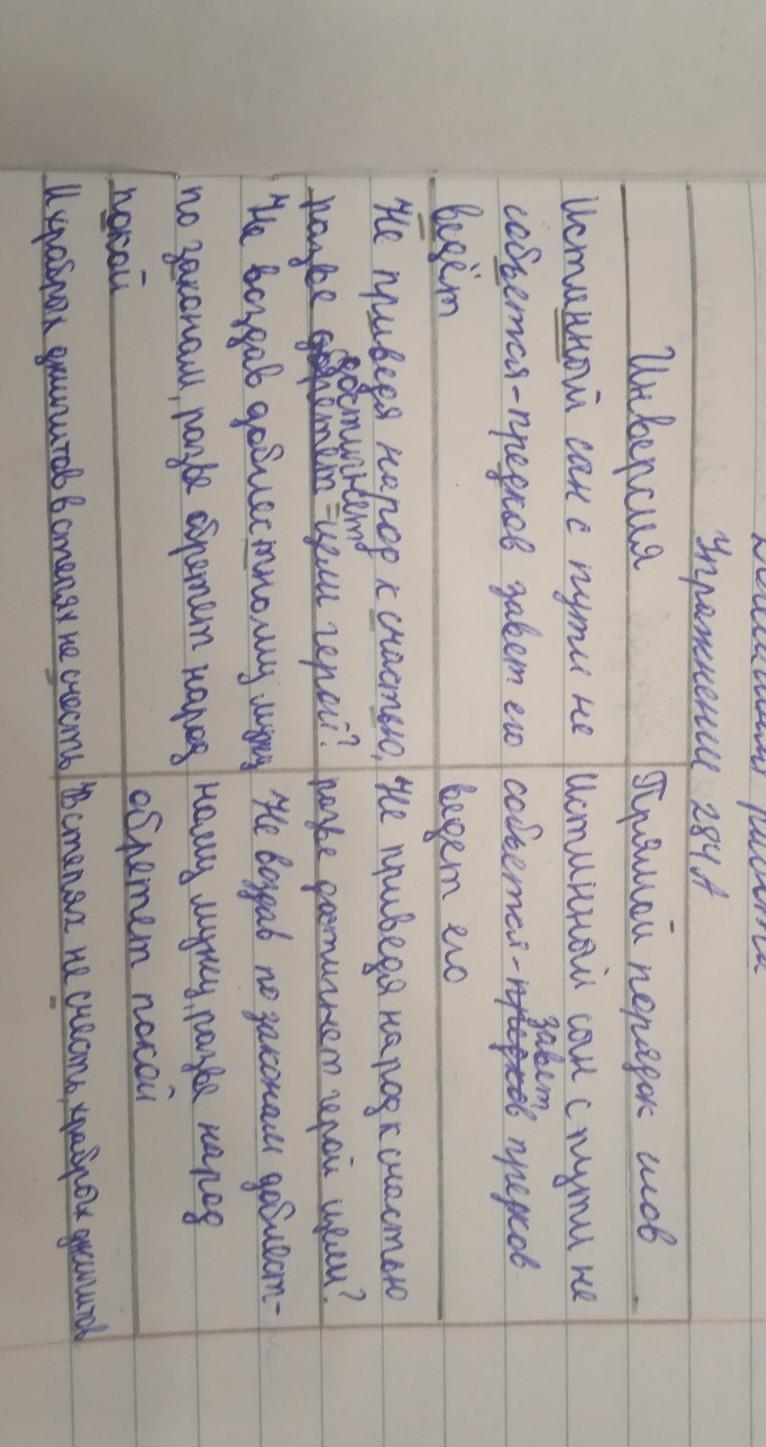 Упражнение 284А
Инверсия
Истинный сан с пути не
собьется-предков завет его
ведёт
Не приведя народ к счастью,
разве достигнет цели герой?
Не воздав доблестному мужу
по законам, разве обретет народ
покой
И храбрых джигитов в степях не счесть
Прямой порядок слов
Истинный сан с пути не
собьется-завет предков
ведет его
Не приведя народ к счастью
разве достигнет герой цели?
Не воздав по законам доблест-
ному мужу, разве народ
обретет покой
В степях не счесть храбрых джигитов